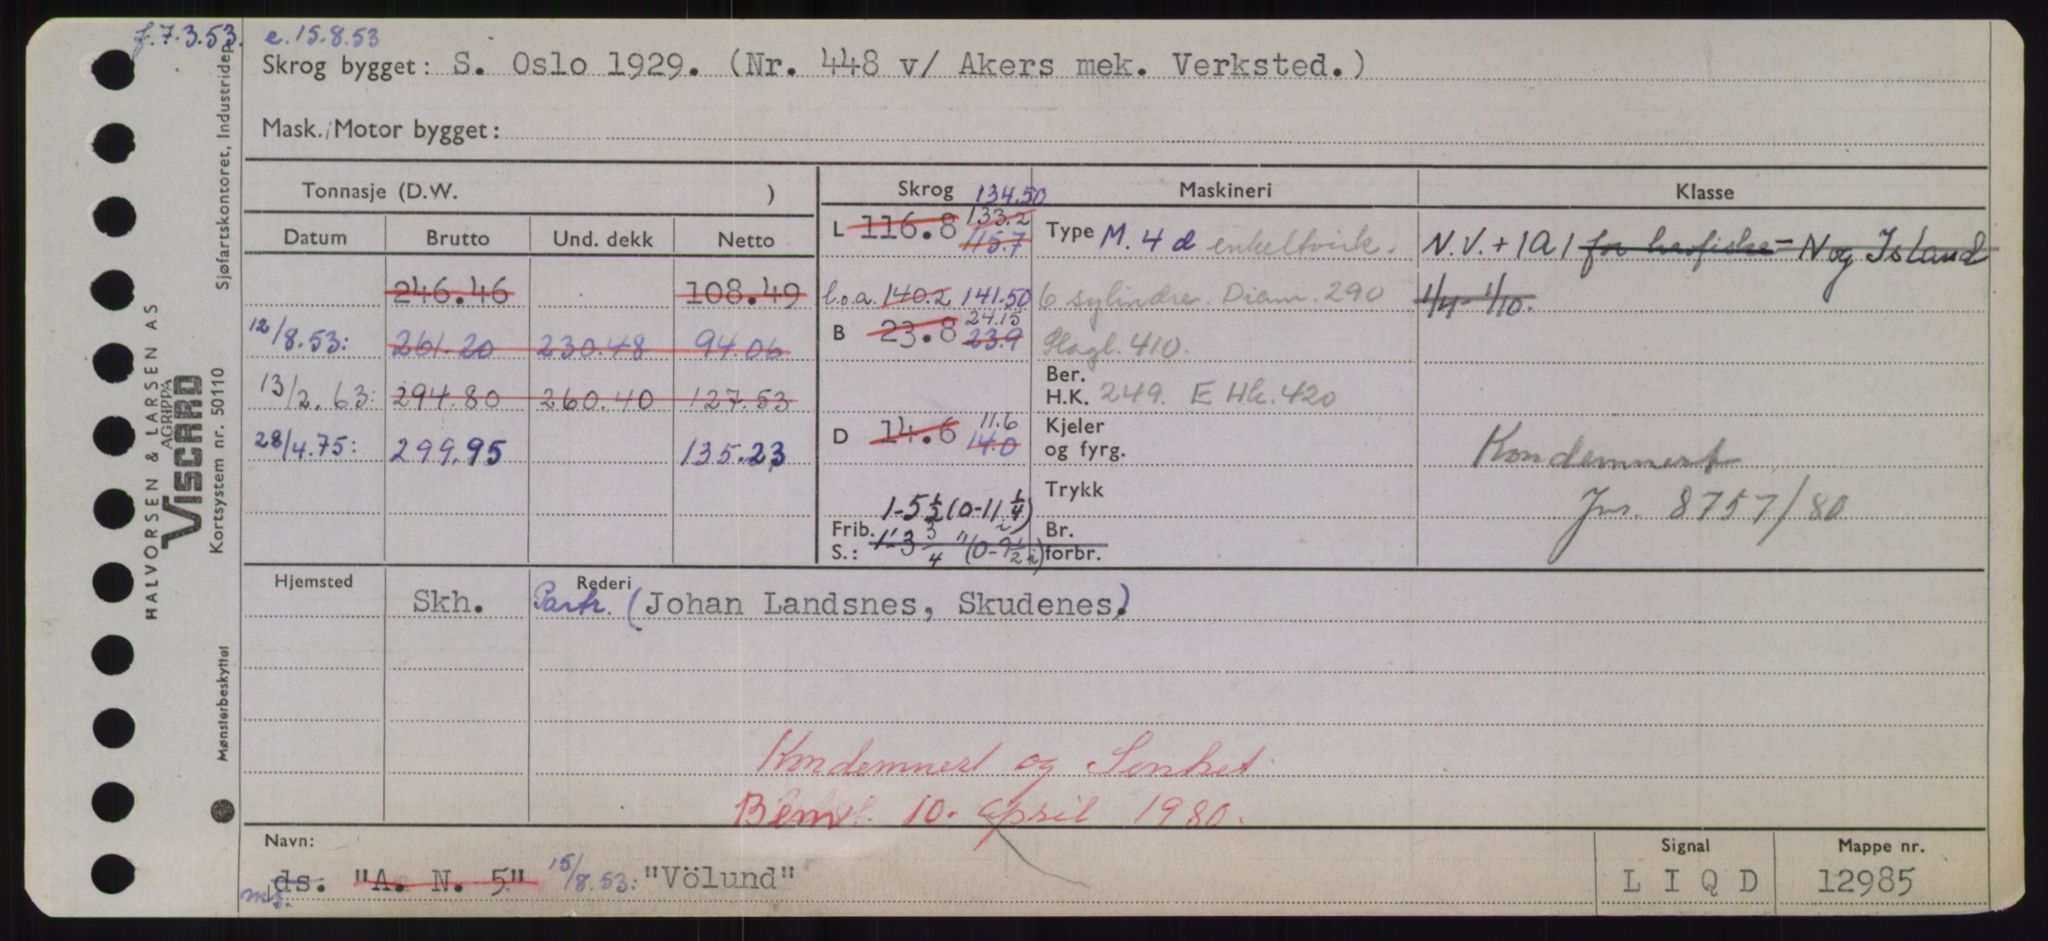 f. 7.3.53. e. 15.8.53
Skrog bygget: S. Oslo 1929. (Nr. 448 v/ Akers mek. Verksted.)
Mask./Motor bygget:
Tonnasje (D.W. )
Datum Brutto Und. dekk Netto
246.46 108.49
12/8.53: 261.20 230.48 94.06
13/2.63: 294.80 260.40 127.53
28/4.75: 299.95 135.23
Skrog 134.50
L 116.8 133.2
115.7
l.o.a. 140.2 141.50
B 23.8 24.15
23.9
D 14.6 11.6
14.0
1-5 1/2 (0-11 1/4)
Frib. S.: 1'-3 3/4" (0-9 1/2)
Maskineri
Type M. 4 d enkeltvirk.
6 sylindre. Diam. 290
Slagl. 410.
Ber. H.K. 249. E Hk. 420
Kjeler og fyrg.
Trykk
Br. forbr.
Klasse
N.V. + 1A1 for havfiske - N og Island
1/4 - 1/10.
Kondemnert
Jnr. 8757/80
Hjemsted Rederi
Skh. Partr. (Johan Landsnes, Skudenes)
Kondemnert og Senket
10. april 1980.
Navn:
ds. "A. N. 5" 15/8.53: "Völund"
ms.
Signal
L I Q D
Mappe nr.
12985
HALVORSEN & LARSEN AS
AGRIPPA
VISCARD
Kortsystem nr. 50110
Sjøfartskontoret, Industridep.
Mønsterbeskyttet